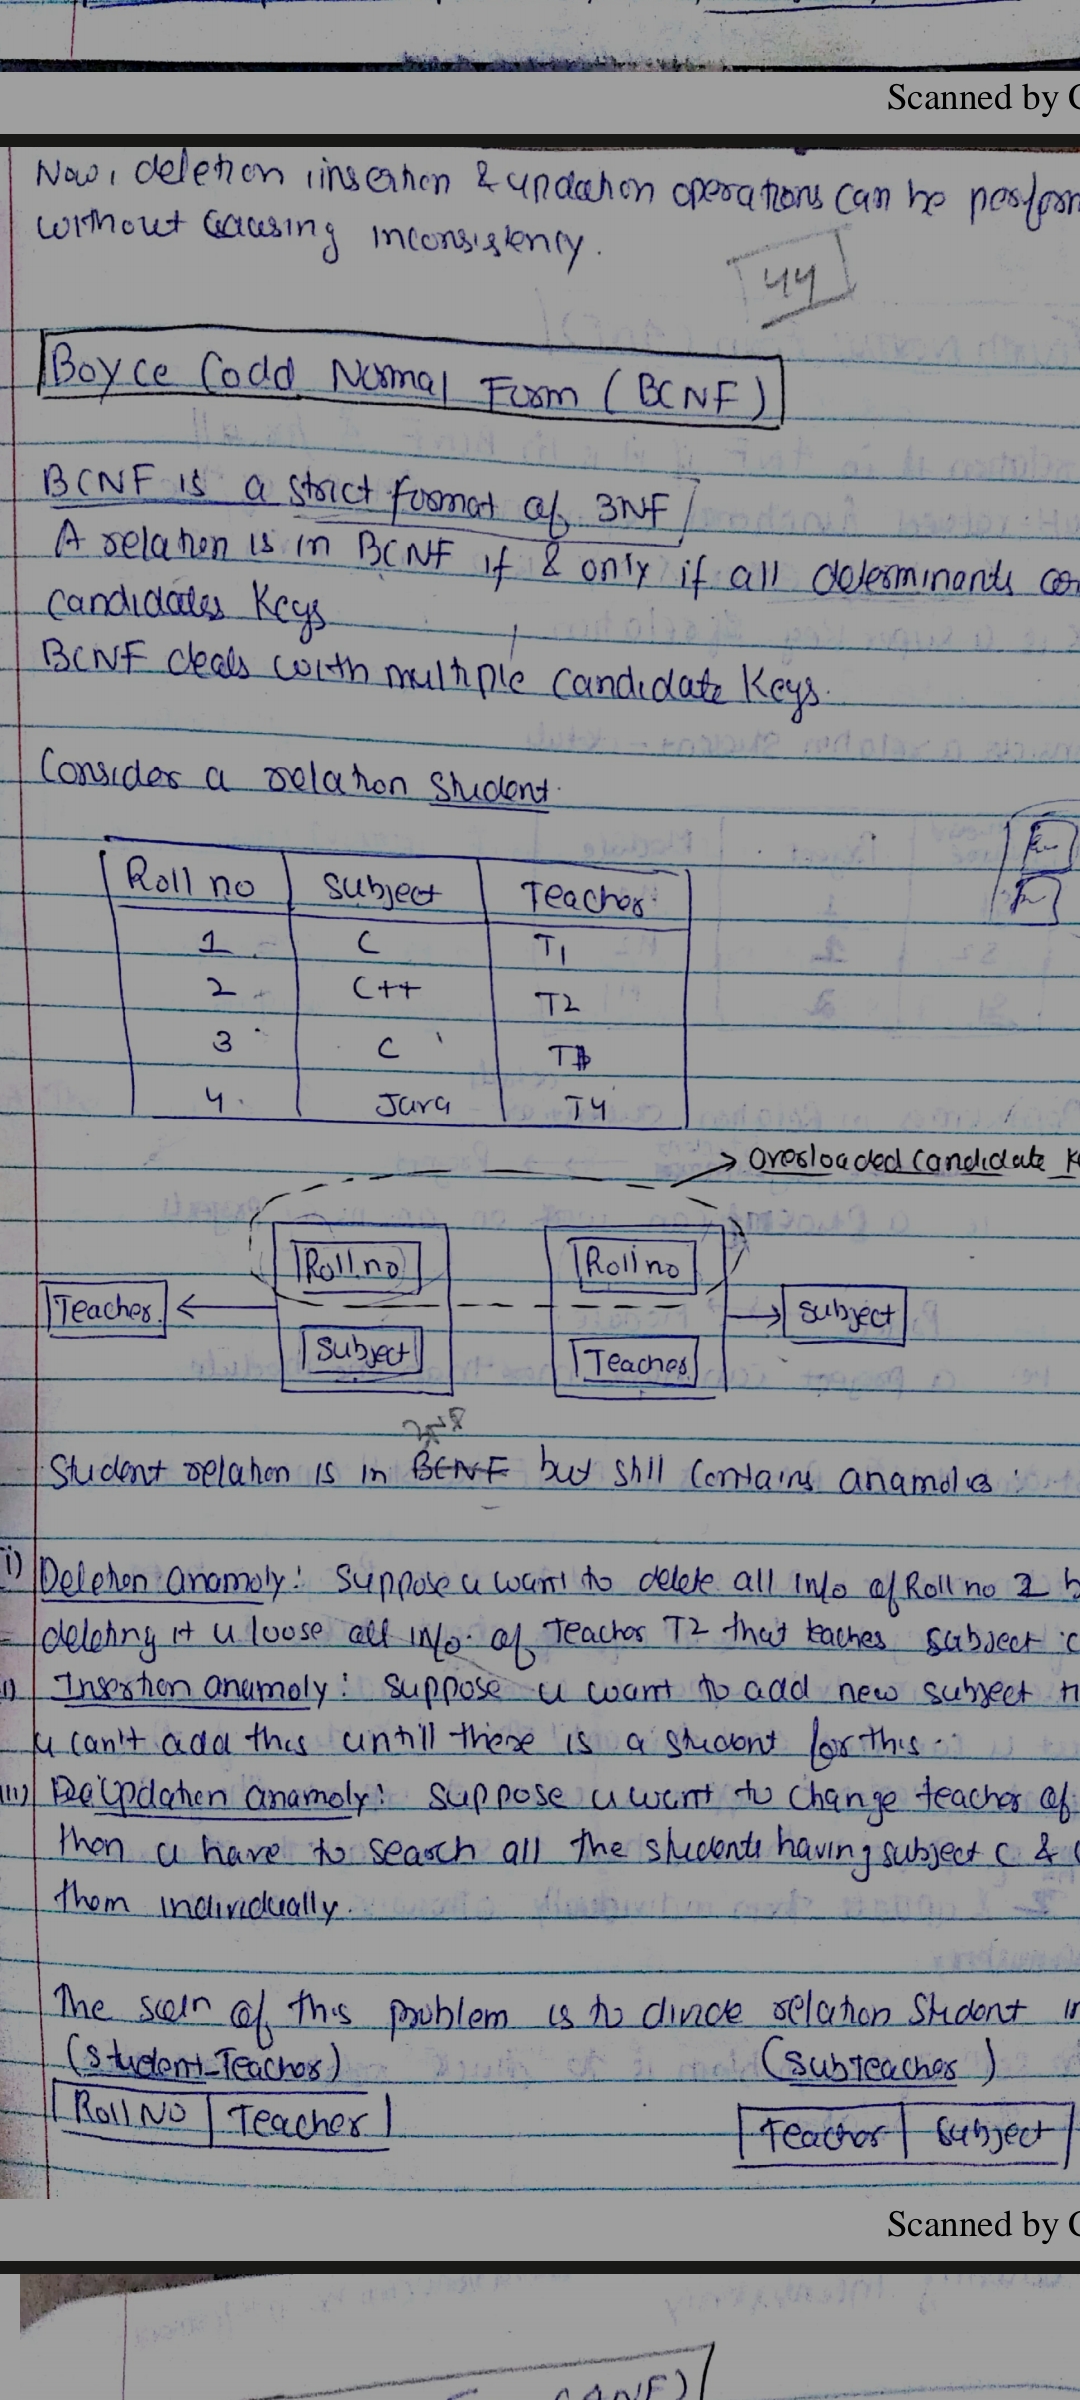 Scanned by C
Now, deletion, insertion & updation operations can be perform
without causing inconsistency.
44
Boyce Codd Normal Form (BCNF)
BCNF is a strict format of 3NF
A relation is in BCNF if & only if all determinants
Candidates Keys
BCNF deals with multiple candidate Keys.
Consider a relation Student.
Roll no Subject Teacher
1 C T1
2 C++ T2
3 C
4. Java T4
Overloaded Candidate
Roll.no Roll no
Teacher. Subject
Subject Teacher
Student relation is in BCNF but still contains anamolies :
i) Deletion anamoly: Suppose u want to delete all info of Roll no 2
deleting it u loose all info. of Teacher T2 that teaches subject
Insertion anamoly: Suppose u want to add new subject
u can't add this untill there is a student for this.
iii) Updation anamoly: Suppose u want to change teacher of
then u have to search all the students having subject C &
them individually.
The soln of this problem is to divide relation Student
(Student-Teacher) (Subteacher)
Roll No Teacher Teacher Subject
Scanned by C